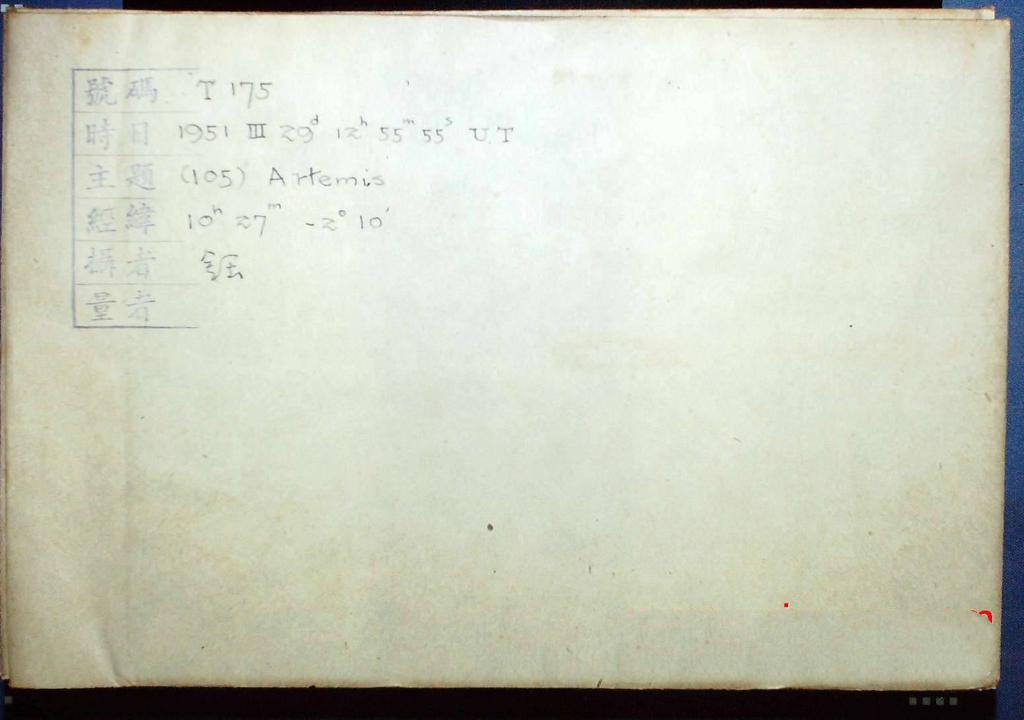 號碼 T 175
時日 1951 III 29d 12h 55m 55s U.T
主題 (105) Artemis
經緯 10h 27m -2° 10'
攝者
量者